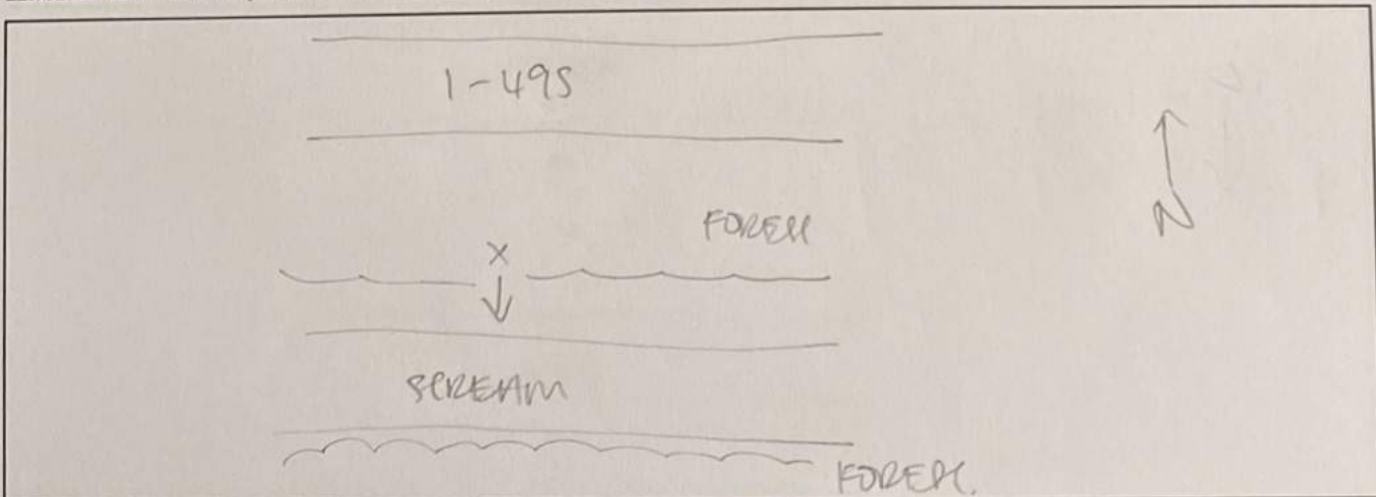 I-495
N
FOREST
X
STREAM
FOREST.